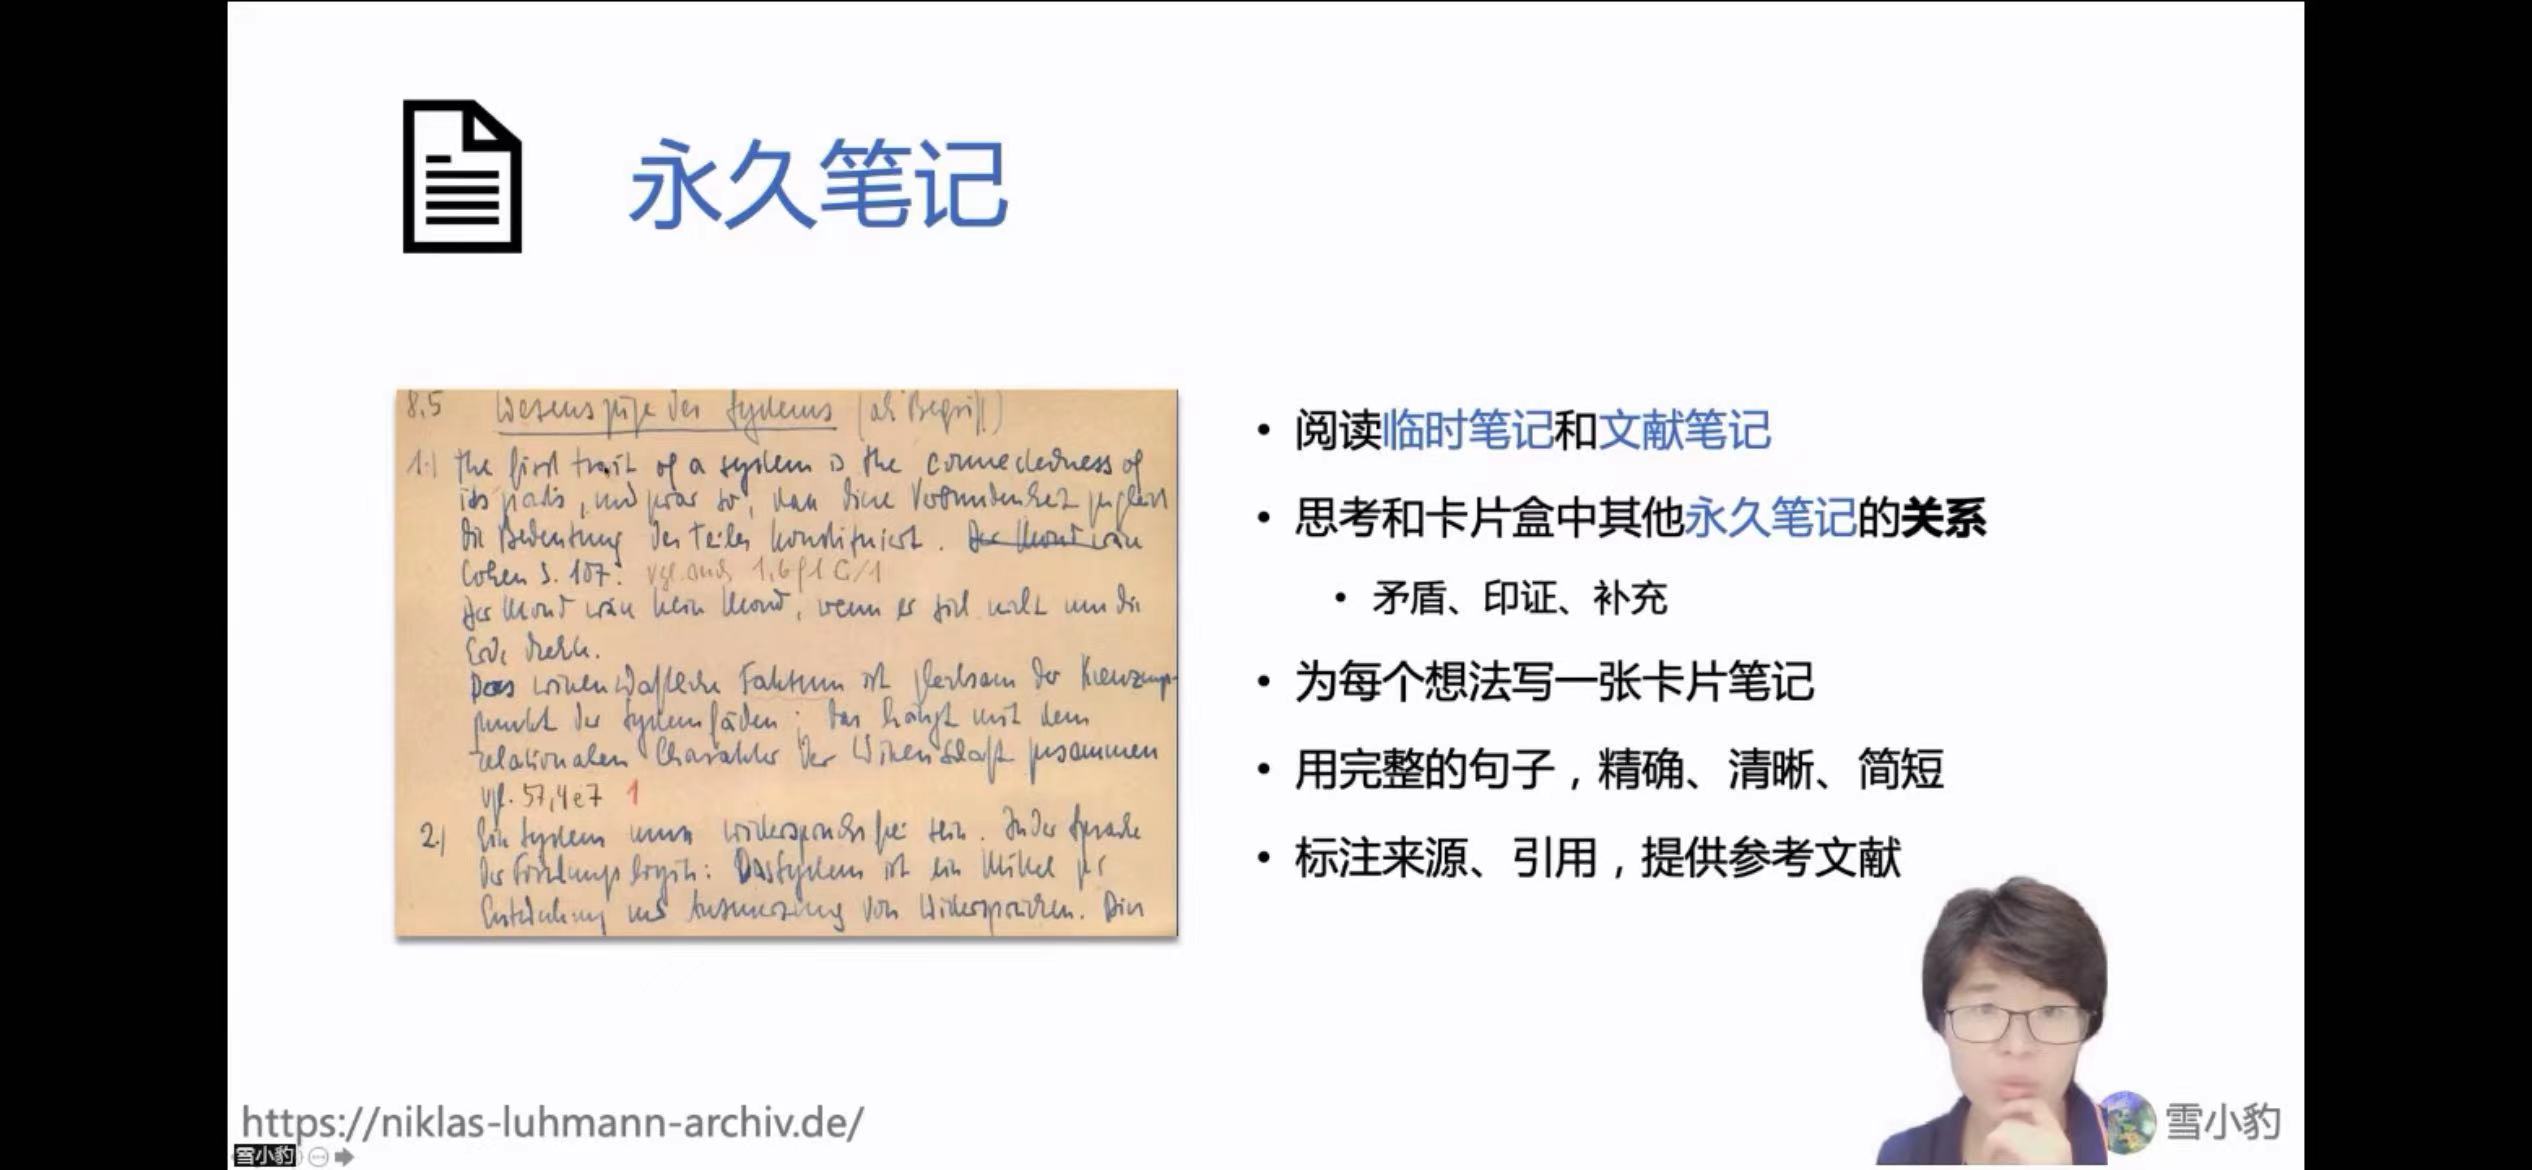 永久笔记
8,5 Wesenszüge des Systems (als Begriff)
1.) The first trait of a system is the connectedness of
its parts, und zwar so, dass diese Verbundenheit zugleich
die Bedeutung des Teiles konstituiert. Der Mond wäre
Cohen S. 107: vgl. auch
Der Mond wäre kein Mond, wenn er sich nicht um die
Erde dreht.
Das wissenschaftliche Faktum ist gleichsam der Kreuzungs-
punkt der Systemfäden; das hängt mit dem
relationalen Charakter der Wissenschaft zusammen
vgl. 57,4e7 1
2.) Ein System muss widerspruchsfrei sein. In der Sprache
der Forschungslogik: Das System ist ein Mittel zur
Entdeckung und Ausmerzung von Widersprüchen. Dies
• 阅读临时笔记和文献笔记
• 思考和卡片盒中其他永久笔记的关系
• 矛盾、印证、补充
• 为每个想法写一张卡片笔记
• 用完整的句子，精确、清晰、简短
• 标注来源、引用，提供参考文献
https://niklas-luhmann-archiv.de/
雪小豹
雪小豹